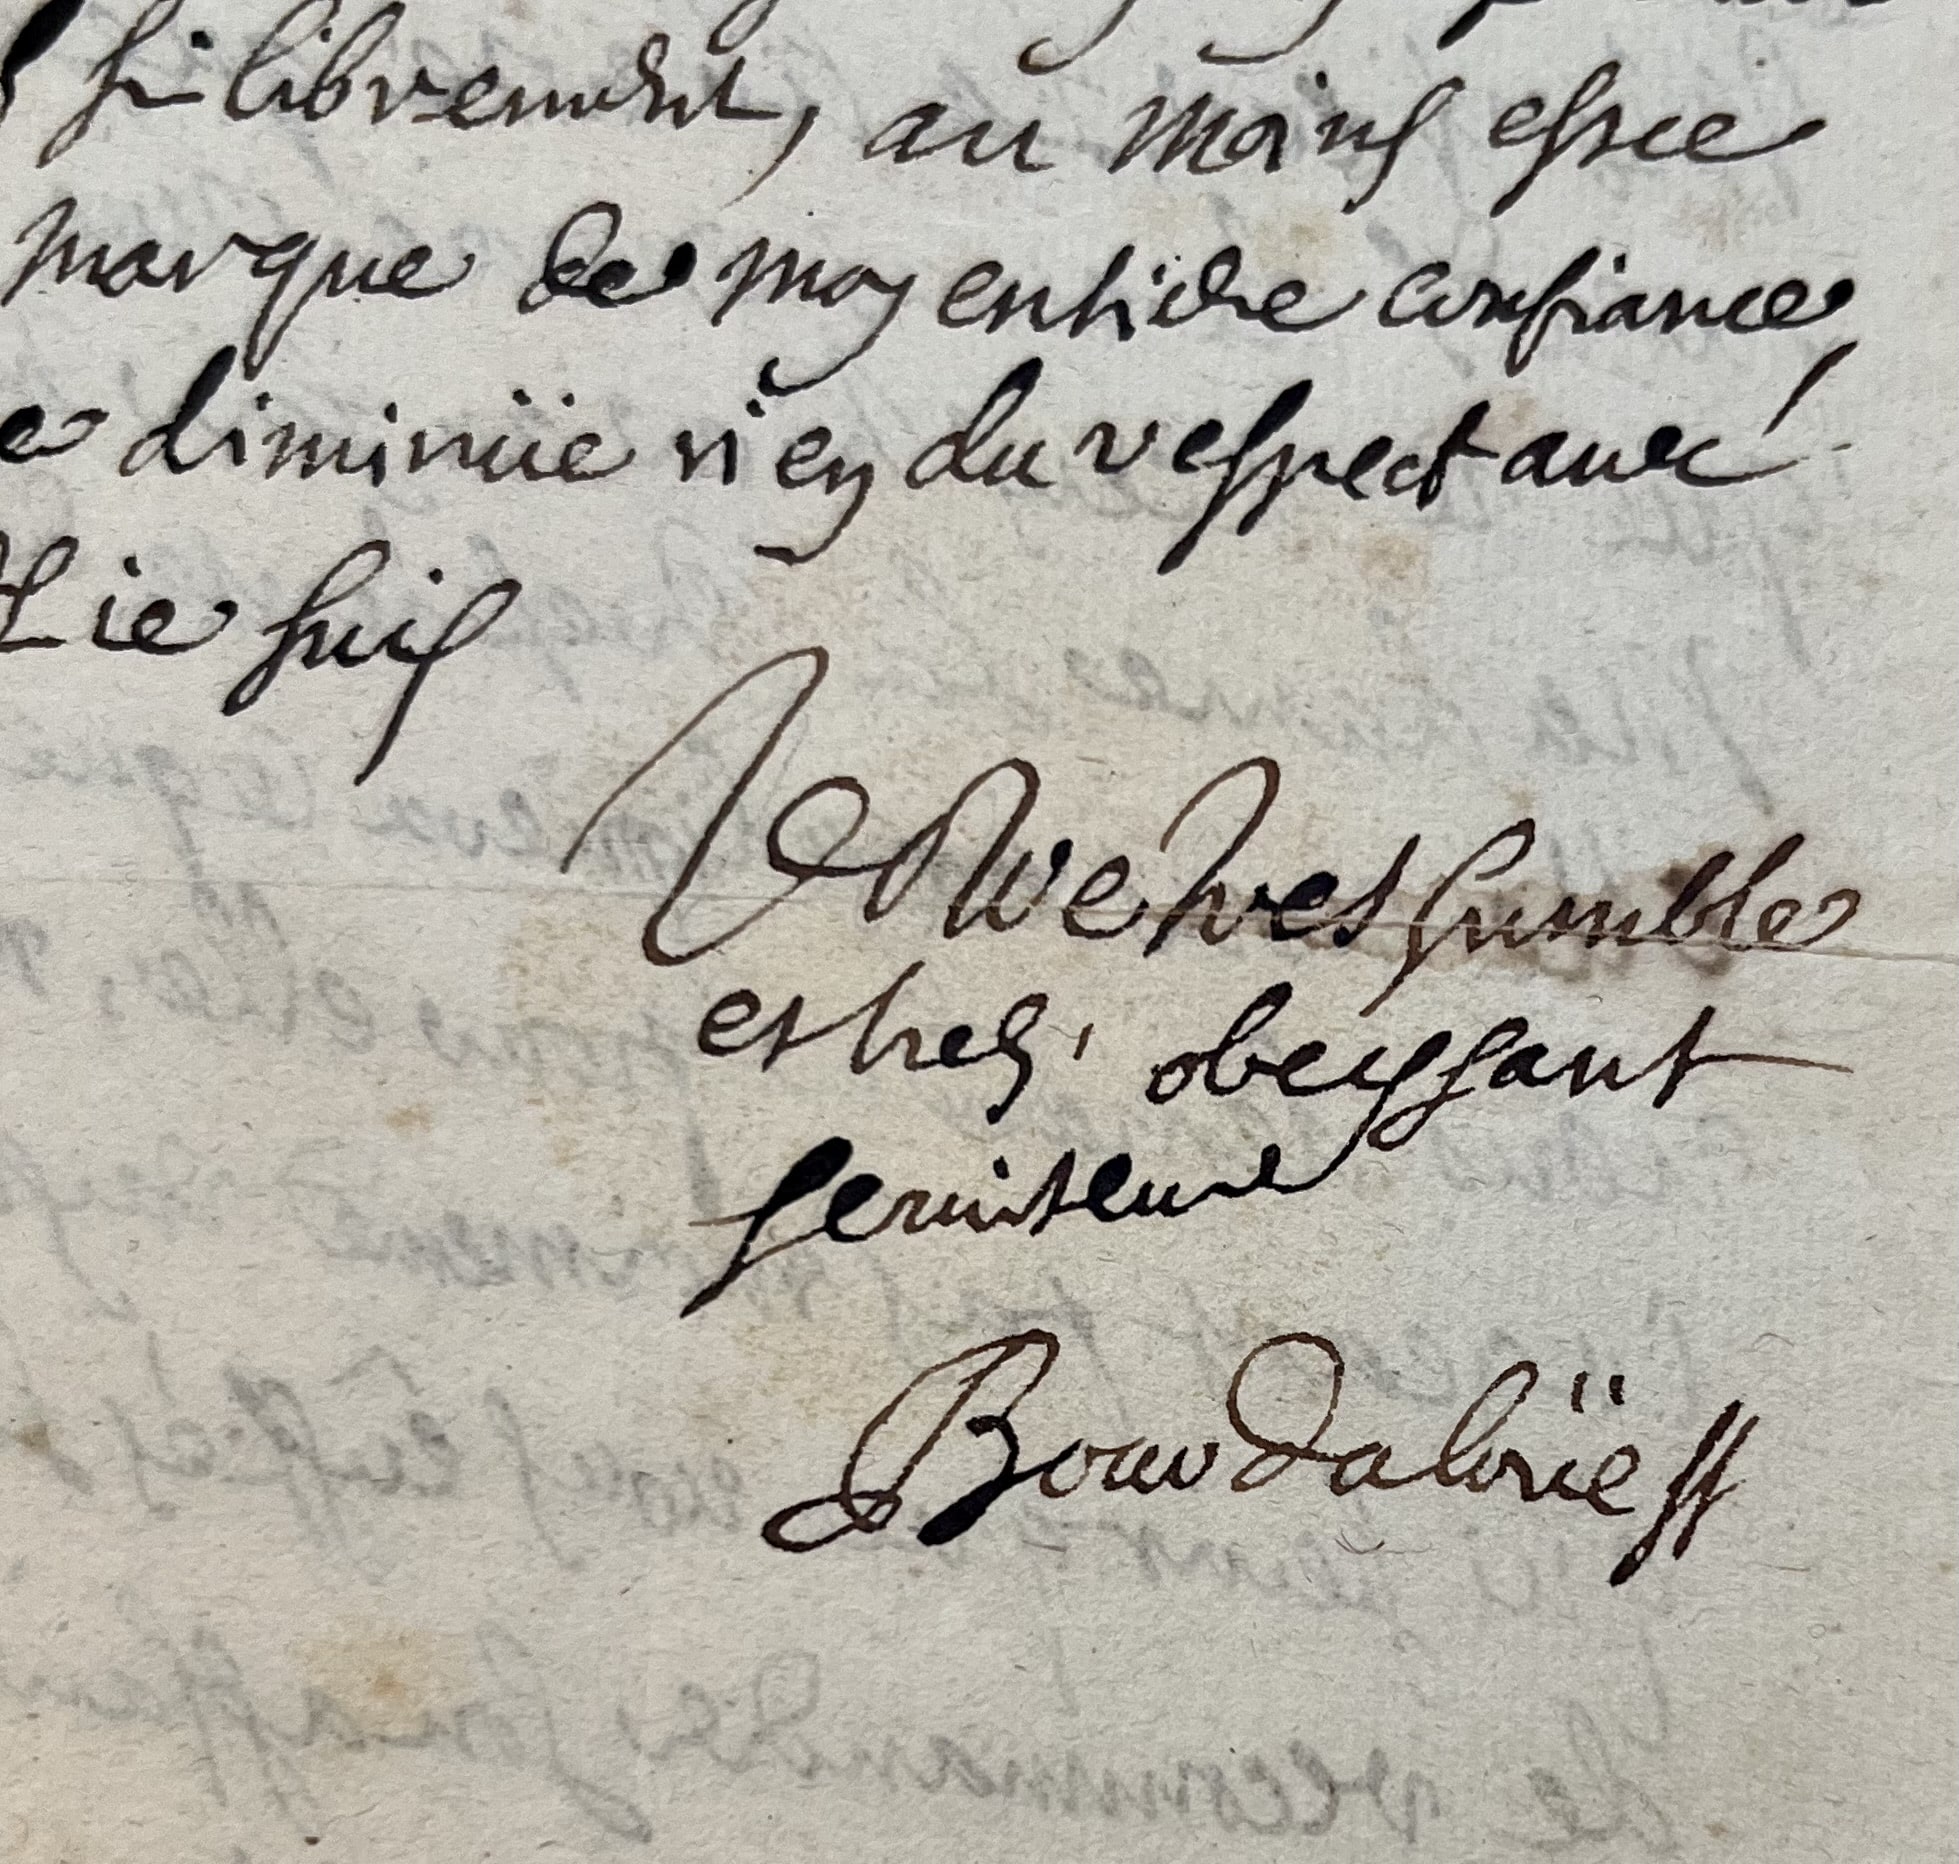 si librement, au moins esce
marque de moy entiere confiance,
diminüe rien du respect avec
ie suis
Vostre tres humble
et tres obeyssant
serviteur
Bourdaloüe